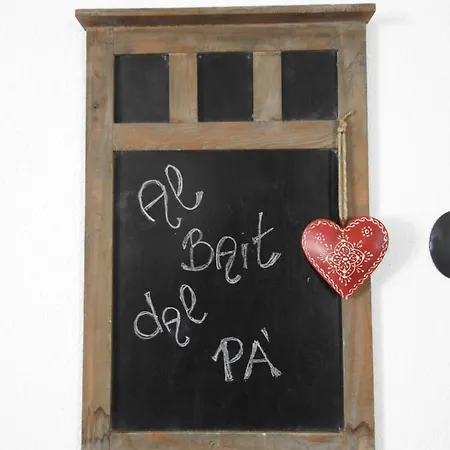 Al
BAit
dal
PA'